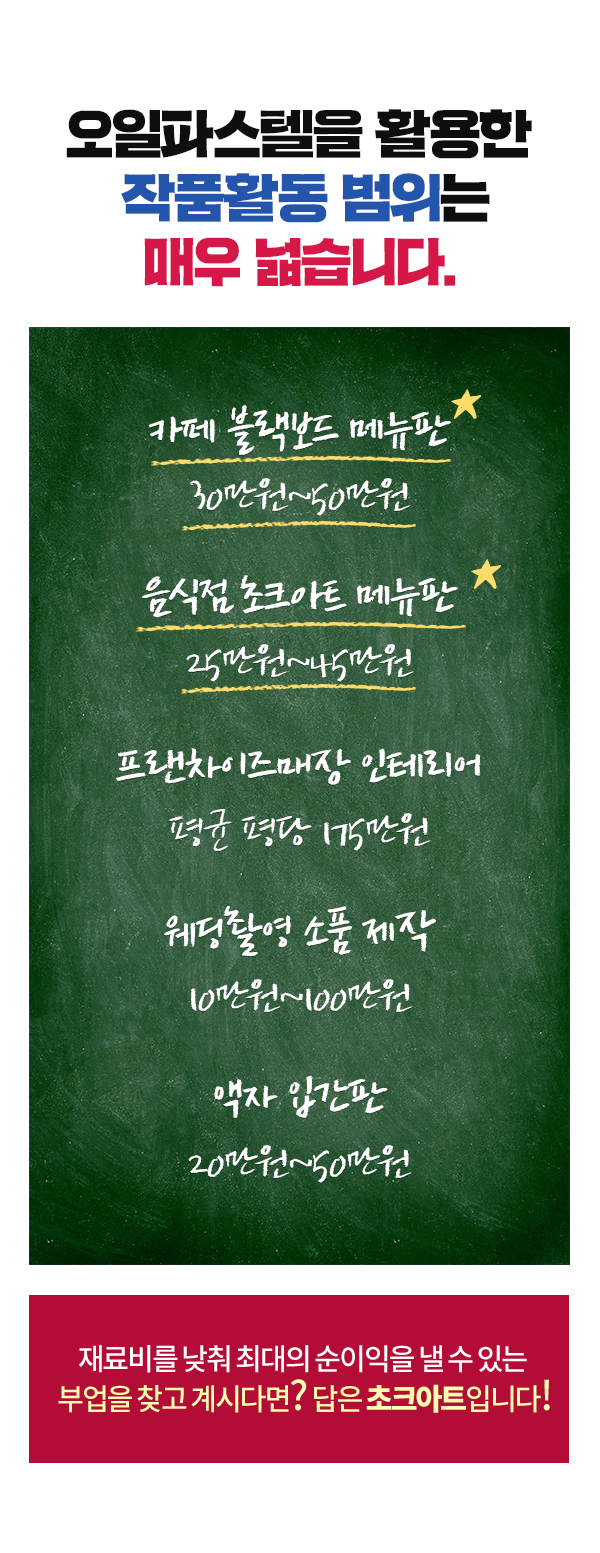 오일파스텔을 활용한
작품활동 범위는
매우 넓습니다.
카페 블랙보드 메뉴판
30만원~50만원
음식점 초크아트 메뉴판
25만원~45만원
프랜차이즈매장 인테리어
평균 평당 175만원
웨딩촬영 소품 제작
10만원~100만원
액자 입간판
20만원~50만원
재료비를 낮춰 최대의 순이익을 낼 수 있는
부업을 찾고 계시다면? 답은 초크아트입니다!